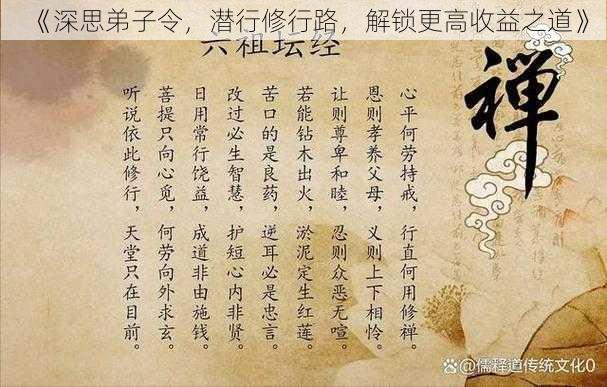 《深思弟子令，潜行修行路，解锁更高收益之道》
六祖坛经
禅
心平何劳持戒，行直何用修禅。
恩则孝养父母，义则上下相怜。
让则尊卑和睦，忍则众恶无喧。
若能钻木出火，淤泥定生红莲。
苦口的是良药，逆耳必是忠言。
改过必生智慧，护短心内非贤。
日用常行饶益，成道非由施钱。
菩提只向心觅，何劳向外求玄。
听说依此修行，天堂只在目前。
@儒释道传统文化0